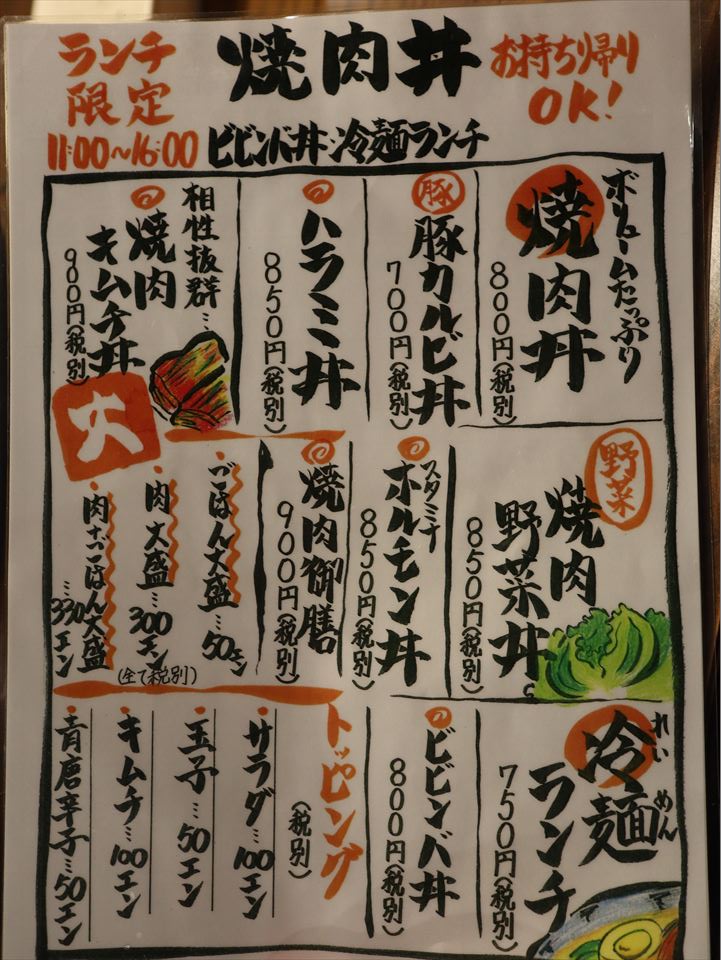 ランチ
限定
11:00〜16:00
焼肉丼
ビビンバ丼・冷麺ランチ
お持ち帰り
OK!
ボリュームたっぷり
焼肉丼
800円(税別)
豚
豚カルビ丼
700円(税別)
ハラミ丼
850円(税別)
相性抜群…
焼肉
キムチ丼
900円(税別)
野菜
焼肉
野菜丼
850円(税別)
スタミナ
ホルモン丼
850円(税別)
焼肉御膳
900円(税別)
大
・ごはん大盛…50エン
・肉大盛…300エン
・肉・ごはん大盛
…330エン
(全て税別)
冷麺
れい めん
ランチ
750円(税別)
ビビンバ丼
800円(税別)
トッピング
(税別)
・サラダ…100エン
・玉子…50エン
・キムチ…100エン
・青唐辛子…50エン